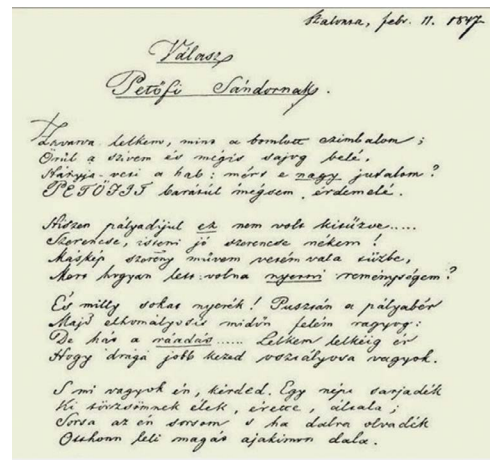 Szalonta, febr. 11. 1847
Válasz
Petőfi Sándornak.
Zavarva lelkem, mint a bomlott czimbalom;
Örűl a szivem és mégis sajog belé,
Hányja veti a hab: mért e nagy jutalom?
PETŐFIT barátúl mégsem érdemelé.
Hiszen pályadíjul ez nem volt kitűzve.....
Szerencse, isteni jó szerencse nékem!
Máskép szerény művem vetém vala tűzbe,
Mert hogyan lett volna nyerni reménységem?
És milly sokat nyerék! Pusztán a pályabér
Majd elhomályosit midőn felém ragyog:
De hát a ráadás...... Lelkem lelkéig ér
Hogy drága jobb kezed osztályosa vagyok.
S mi vagyok én, kérded. Egy népi sarjadék
Ki törzsömnek élek, érette, általa;
Sorsa az én sorsom s ha dalra olvadék
Otthonn leli magát ajakimon dala.